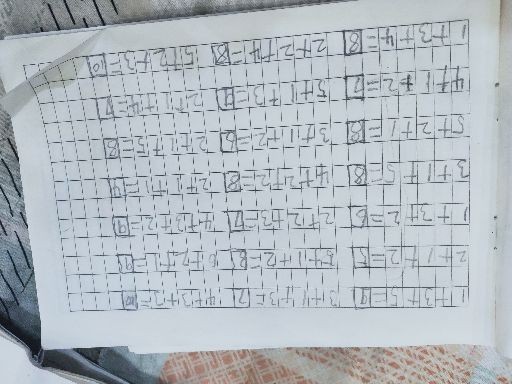 1+3+5=9 3+1+3=7 4+3+3=10
2+1+2=5 5+1+2=8 6+2+1=9
1+3+2=6 2+2+3=7 4+3+2=9
3+1+5=8 4+2+2=8 2+1+1=4
5+2+1=8 3+1+2=6 2+1+5=8
4+1+2=7 5+1+3=9 2+1+4=7
1+3+4=8 2+2+4=8 5+2+3=10